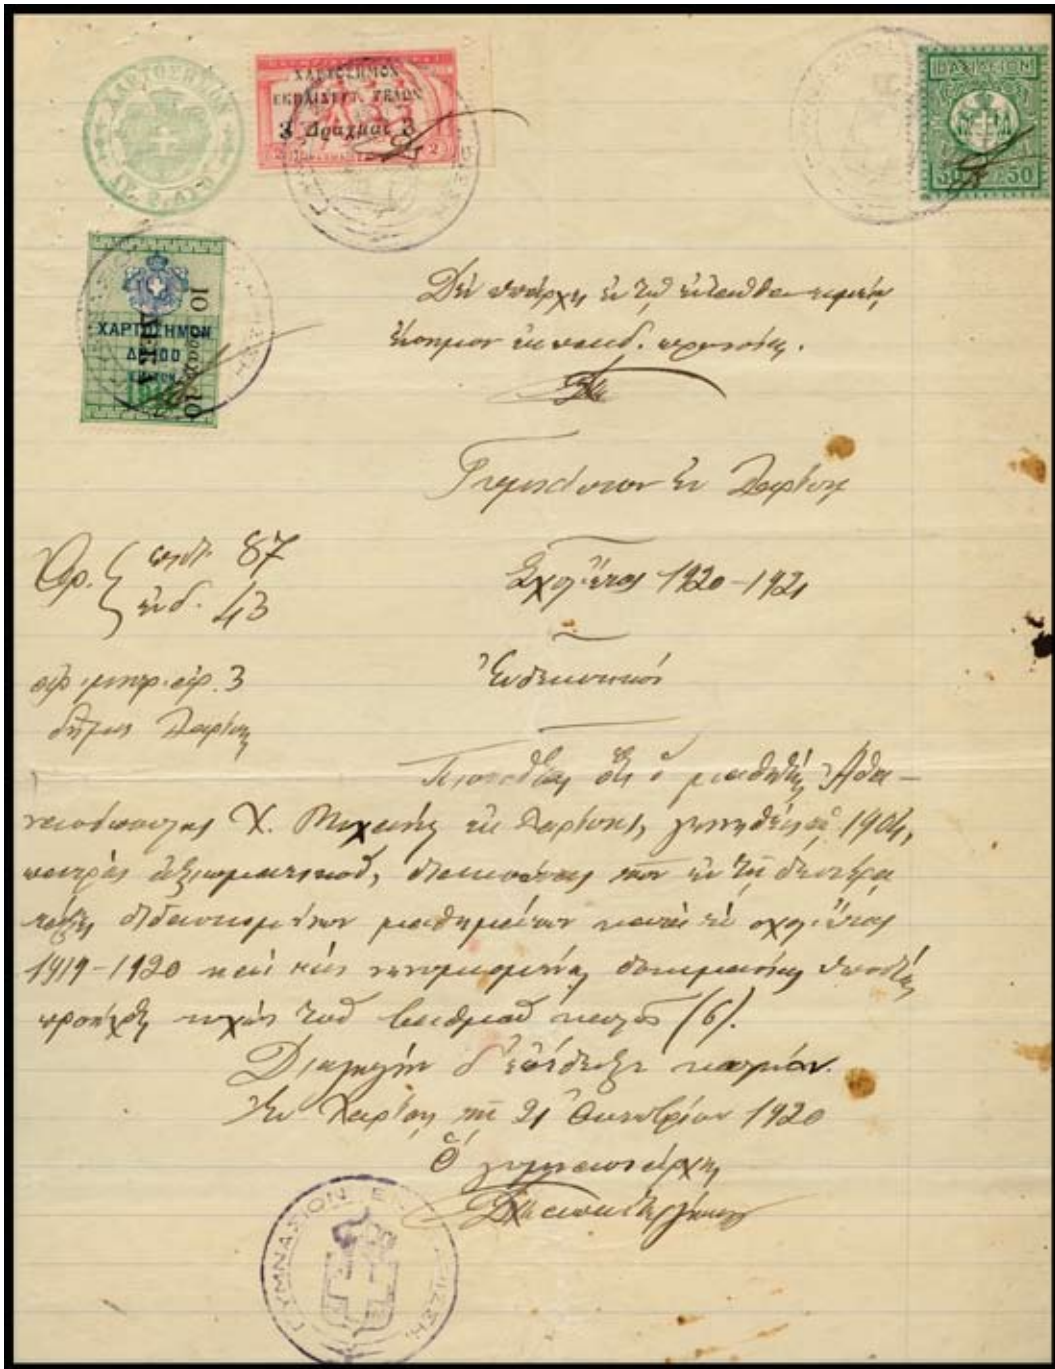 ΧΑΡΤΟΣΗΜΟΝ
ΧΑΡΤΟΣΗΜΟΝ
ΕΚΠΑΙΔΕΥΤ. ΤΕΛΩΝ
3 Δραχμαί 3
2
ΒΑΣΙΛΕΙΟΝ
50 50
ΧΑΡΤΟΣΗΜΟΝ
10 10
Δὲν ὑπάρχει ἐν τῷ ἐνταῦθα
ἔνσημον ἐκπαιδ. προνοίας.
Γυμνάσιον ἐν Λαρίσῃ
Ἀρ. πρωτ. 87
ἐνδ. 43
Σχολ. ἔτος 1920-1921
Ἐνδεικτικόν
ἀρ. μητρ. ἀρ. 3
δήμου Λαρίσης
Πιστοποιεῖται ὅτι ὁ μαθητὴς Ἀθα-
νασόπουλος Χ. Μιχαὴλ ἐκ Λαρίσης, γεννηθεὶς τῷ 1904,
πατρὸς ἀξιωματικοῦ, διακούσας τῶν ἐν τῇ δευτέρᾳ
τάξει διδασκομένων μαθημάτων κατὰ τὸ σχολ. ἔτος
1919-1920 καὶ τὰς νενομισμένας δοκιμασίας ὑποστὰς
προήχθη τυχὼν τοῦ βαθμοῦ καλῶς (6).
Διαγωγὴν δ' ἐπέδειξε κοσμίαν.
Ἐν Λαρίσῃ τῇ 21 Ὀκτωβρίου 1920
Ὁ γυμνασιάρχης
ΓΥΜΝΑΣΙΟΝ Ε